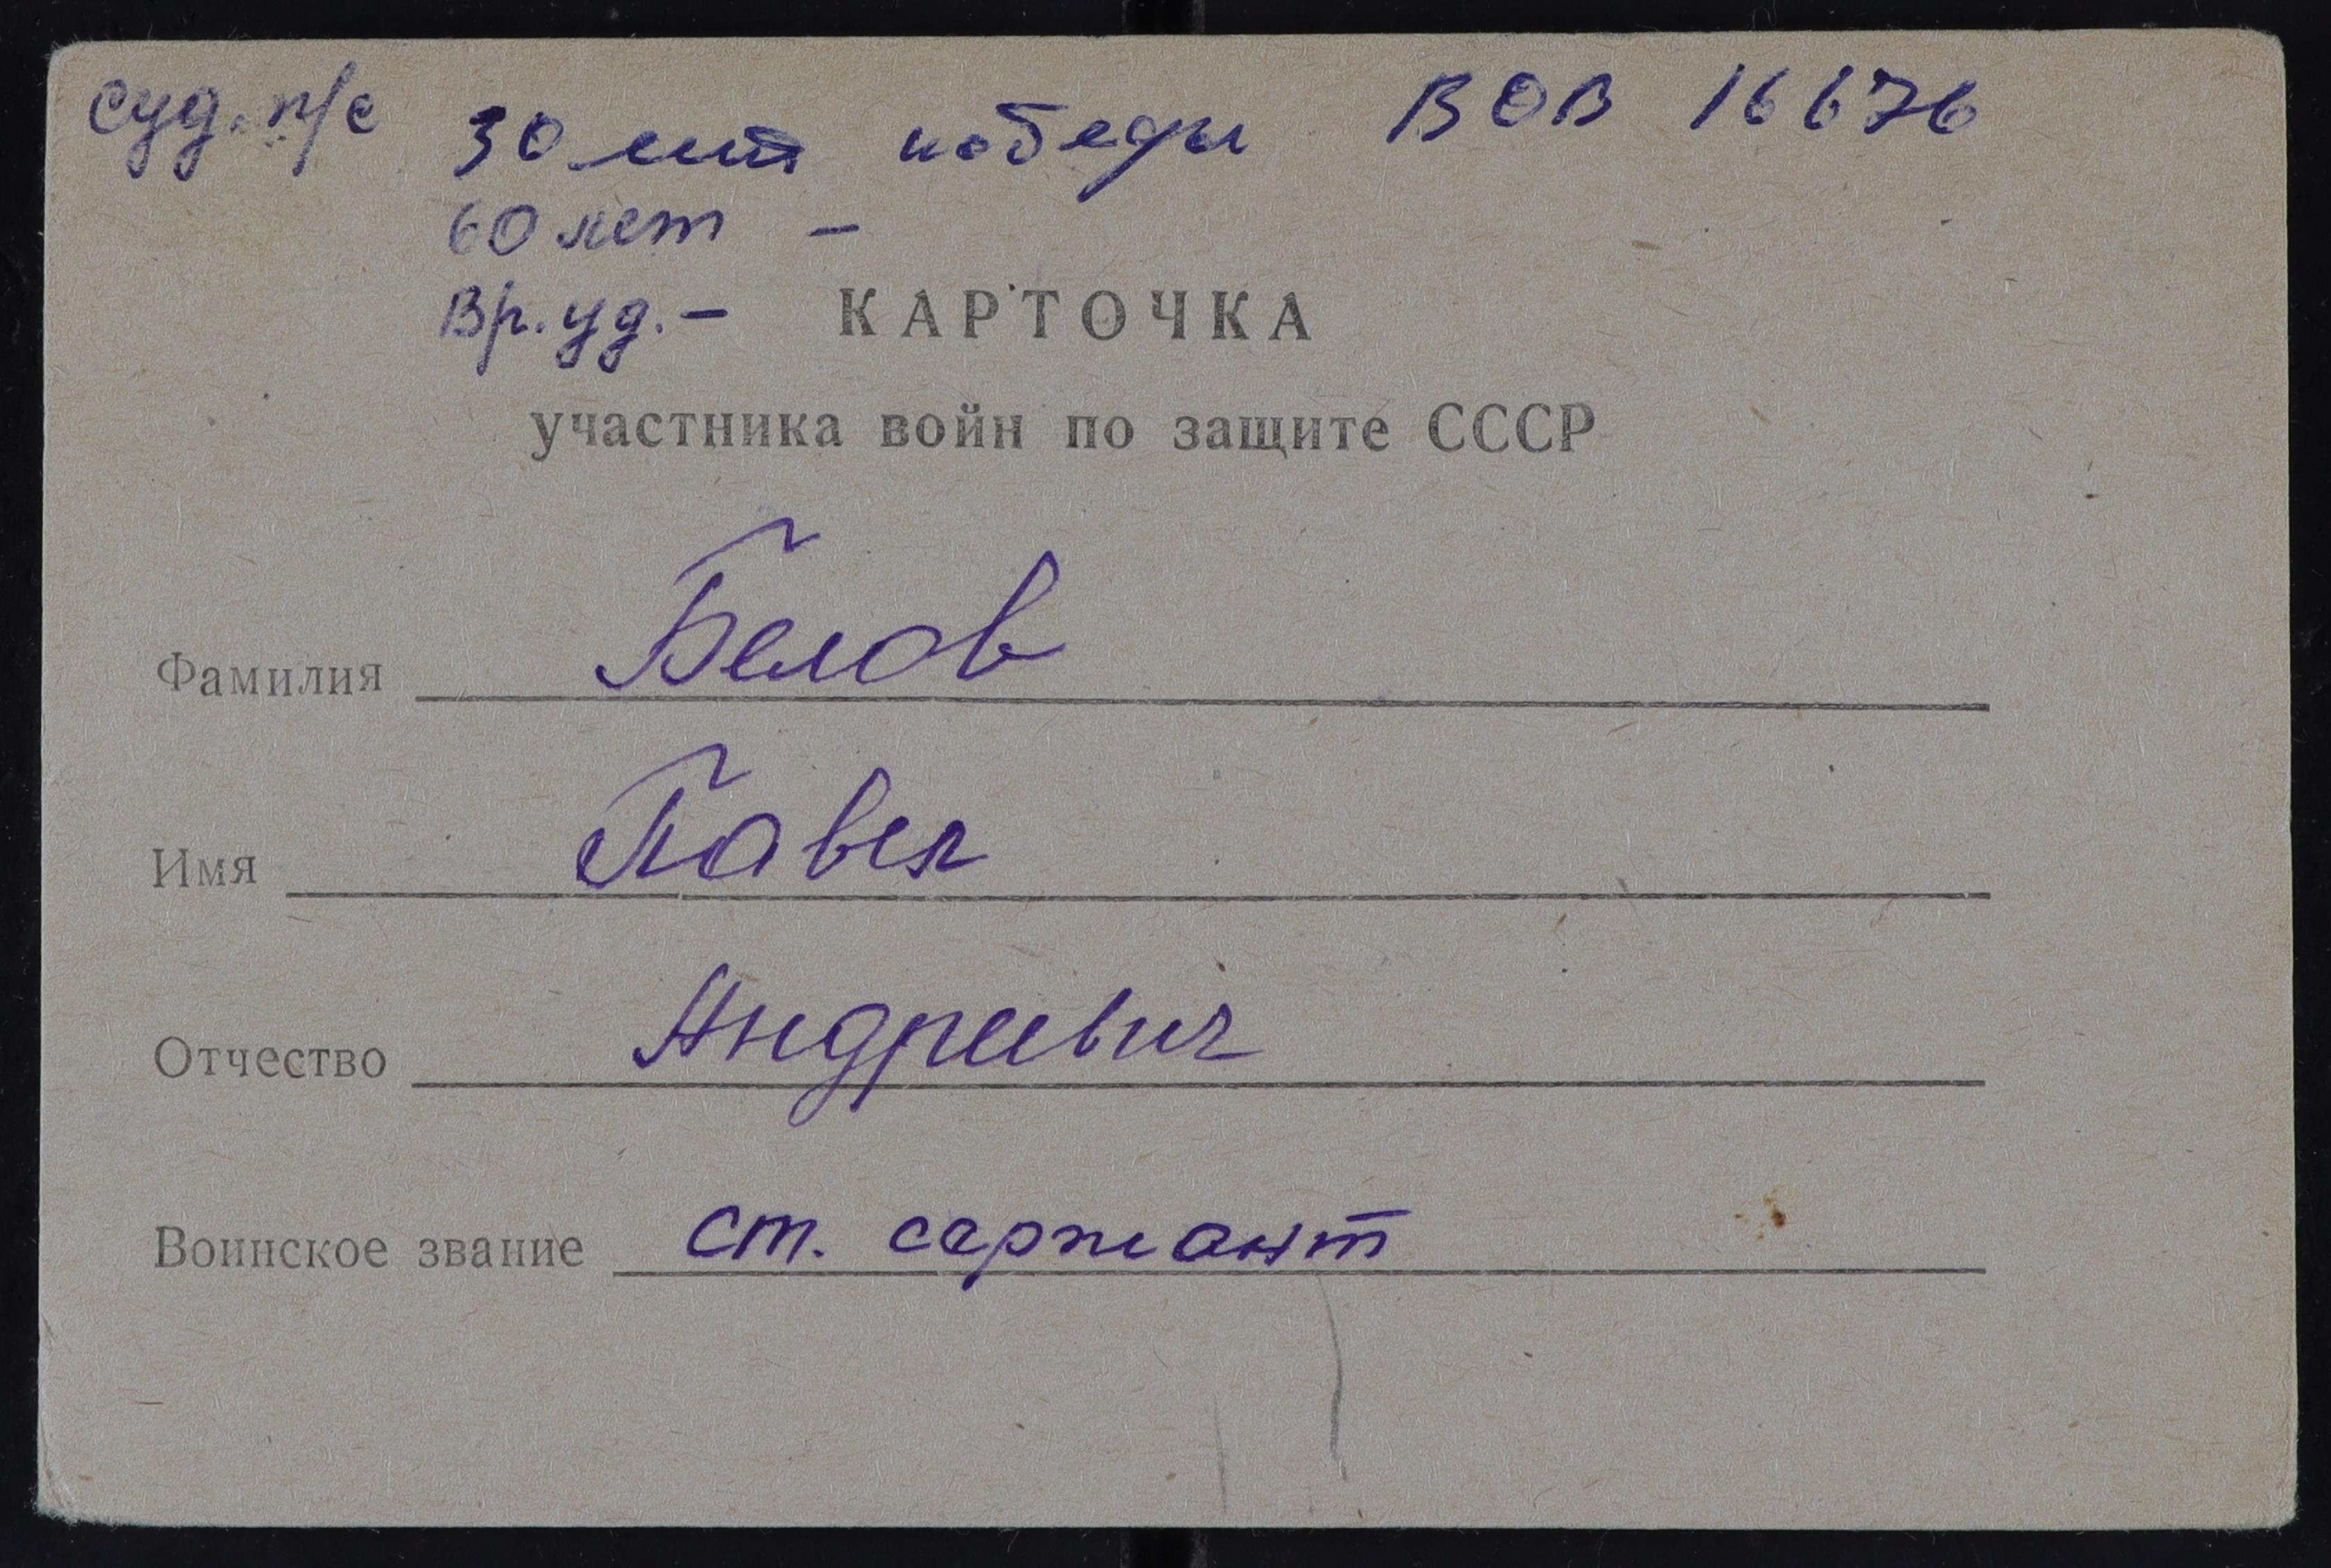 суд. п/с 30 лет победы ВОВ 16676
60 лет –
Вр. уд. –
КАРТОЧКА
участника войн по защите СССР
Фамилия Белов
Имя Павел
Отчество Андреевич
Воинское звание ст. сержант